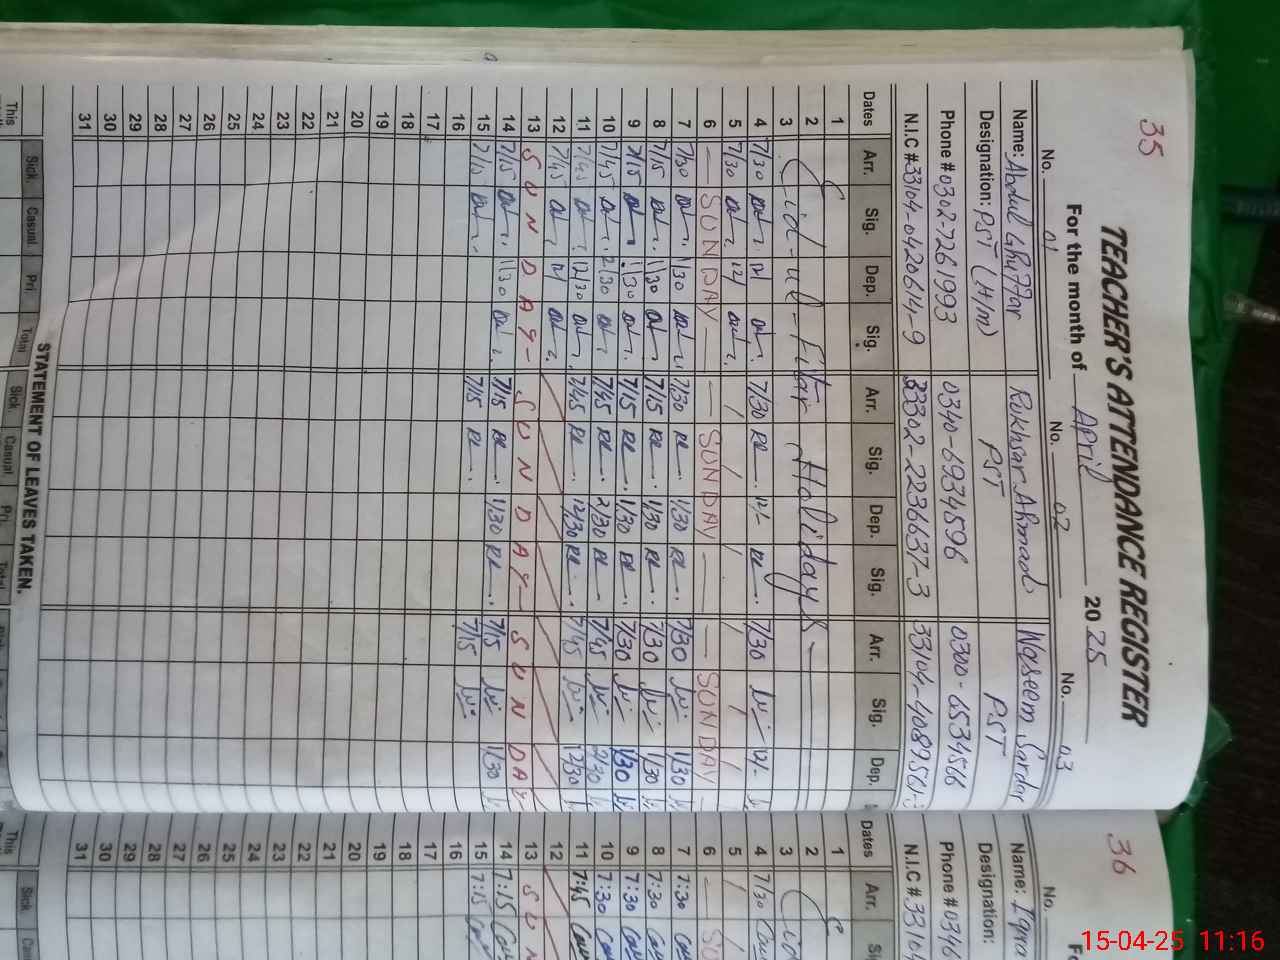 35
TEACHER'S ATTENDANCE REGISTER
For the month of April 2025
No. 01 No. 02 No. 03
Name: Abdul Ghaffar Rukhsar Ahmad Waseem Sardar
Designation: PST (H/M) PST PST
Phone # 0302-7261993 0340-6934596 0300-6534566
N.I.C # 33104-0420614-9 33302-2236637-3
Dates Arr. Sig. Dep. Sig. Arr. Sig. Dep. Sig. Arr. Sig. Dep.
1
2 Eid-ul-Fitar Holidays
3
4 7/30 12/ 7/30 12/- 7/30 12/-
5 7/30 12/
6 — SUNDAY — — SUNDAY — — SUNDAY —
7 7/30 1/30 7/30 1/30 7/30 1/30
8 7/15 1/30 7/15 1/30 7/30 1/30
9 7/15 1/30 7/15 1/30 7/30 1/30
10 7/45 2/30 7/45 2/30 7/45 2/30
11 7/45 12/30 7/45 12/30 7/45 12/30
12 7/45 12/
13 SUNDAY SUNDAY SUNDAY
14 7/15 1/30 7/15 1/30 7/15 1/30
15 7/15 7/15 7/15
16
17
18
19
20
21
22
23
24
25
26
27
28
29
30
31
STATEMENT OF LEAVES TAKEN.
This Sick. Casual. Pri Total Sick. Casual. Pri. Total
36
No.
Name: Iqra
Designation:
Phone # 0346
N.I.C # 33104
Dates Arr.
1
2
3
4 7/30
5
6
7 7:30
8 7:30
9 7:30
10 7:30
11 7:45
12
13 SUN
14 7:15
15 7:15
16
17
18
19
20
21
22
23
24
25
26
27
28
29
30
31
This Sick
15-04-25 11:16